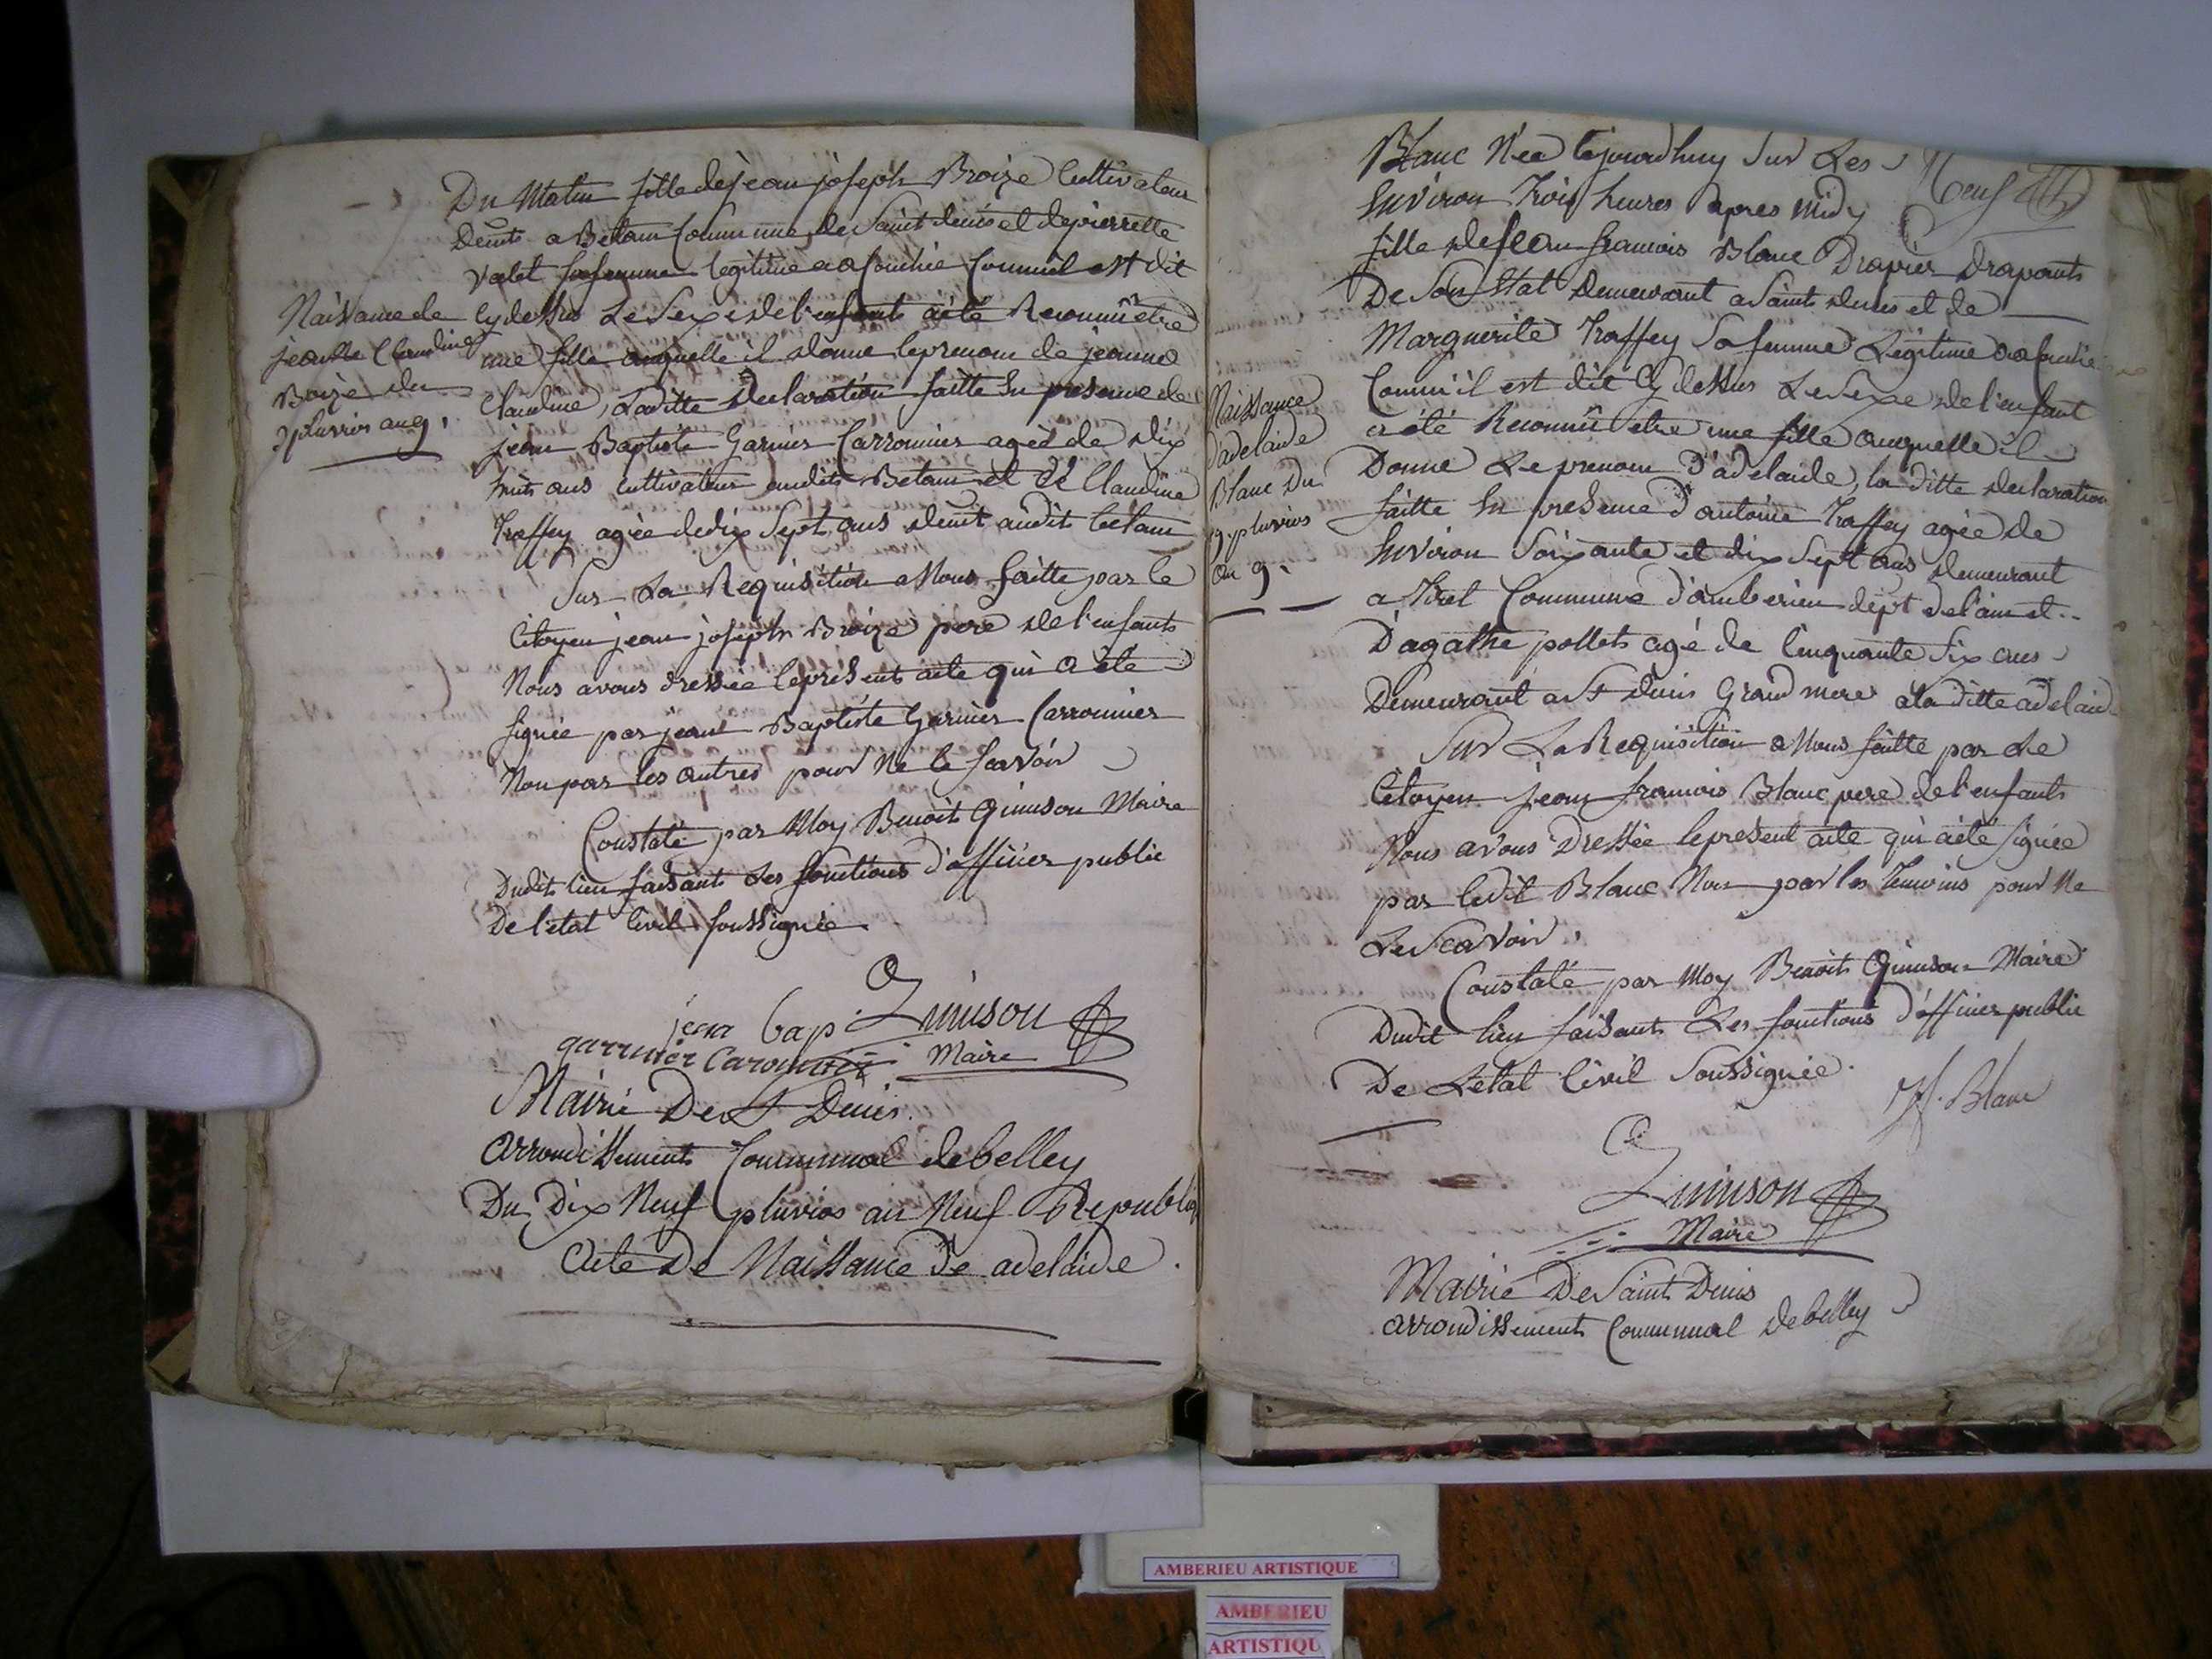 Du Matin fille de jean joseph Broize Cultivateur
Deint a Betam Commune de Saint denis et de pierrette
valet sa femme legitime a acouchée Comme il est dit
Cy dessus Le Sexe de l'enfants a été Reconnû etre
une fille auquelle il donne le prenom de jeanne
Claudine, Laditte Declaration faitte En presence de
jean Baptiste Garnier Carronnier agée de dix
huit ans Cultivateur audits Betam et de Claudine
Traffey agée de dix Sept ans deint audit betam
Sur La Requisition a Nous faitte par le
Citoyen jean joseph Broize pere de l'enfants
Nous avons dressée le present acte qui a ete
signée par jean Baptiste Garnier Carronnier
Non par les autres pour Ne le scavoir
Constaté par Moy Benoit Quinson Maire
Dudits lieu faisants Les fonctions d'officier public
De l'etat Civil soussignée
Naissance de
jeanne Claudine
Broize du
pluvios an 9.
jean bap
Quinson
garrnier Caronnier
Maire
Mairie De St Denis
arrondissements Communal de belley
Du Dix Neuf pluvios an Neuf Republiq
Acte De Naissance de adelaide.
Neuf
Blanc Née Cejourdhuy Sur Les
Environ Trois heures apres Midy
fille de jean francois Blanc Drapier Drapants
De Son Etat Demeurant a Saint denis et de
Marguerite Traffey Sa femme Legitime a acouchée
Comm'il est dit Cy dessus Le Sexe de l'enfant
a été Reconnû etre une fille auquelle il
Donne Le prenom D'adelaide, la ditte declaration
faitte En presence d'antoine Traffey agée de
Environ Soixante et dix Sept ans demeurant
a Tiret Commune d'amberieu dépt de l'ain et
D'agathe pollets agé de Cinquante Six ans
Demeurant a St denis Grand mere a la ditte adelaide
Sur La Requisition a Nous faitte par Le
Citoyen jean francois Blanc pere de l'enfants
Nous avons Dressée le present acte qui a été signée
par ledit Blanc Non par les Temoins pour Ne
Le Scavoir,
Constaté par Moy Benoits Quinson Maire
Dudit lieu faisants Les fonctions d'officier public
De L'etat Civil Soussignée.
Naissance
d'adelaide
Blanc Du
19 pluvios
an 9.
Jf. Blanc
Quinson
Maire
Mairie De Saint Denis
arrondissements Communal de belley
AMBERIEU ARTISTIQUE
AMBERIEU
ARTISTIQU